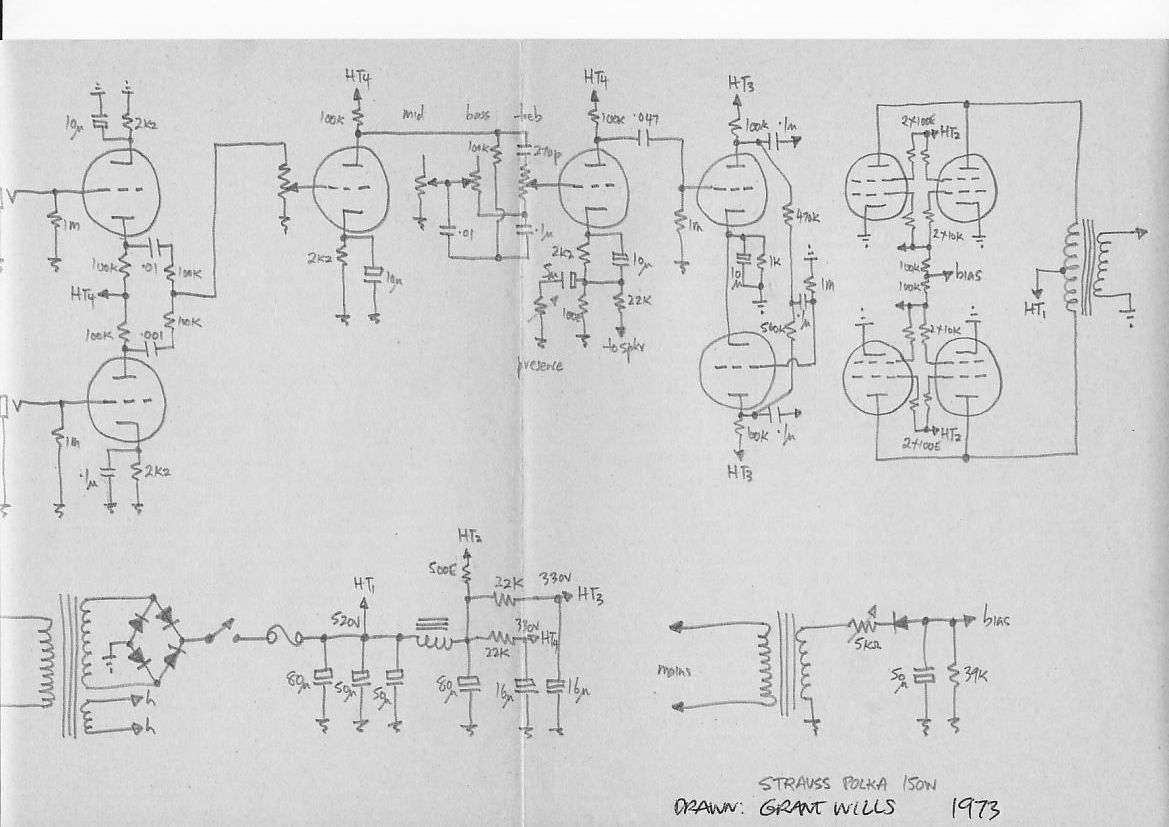 HT4
HT4
HT3
10μ
2K2
100K
mid
bass
treb
100K
.047
100K
.1μ
2×100E
HT2
100K
270p
1m
1m
470K
100K
.01
100K
2K2
10μ
.01
.1μ
2K2
10μ
5μ
10μ
1K
1m
2×10K
100K
bias
100K
HT4
100K
.001
100K
100E
22K
to spkr
presence
500K
.1μ
2×10K
HT1
1m
.1μ
2K2
100K
.1μ
HT3
HT2
2×100E
HT2
500E
22K
330V
HT3
HT1
520V
330V
HT4
22K
80μ
50μ
50μ
80μ
16μ
16μ
h
h
mains
5KΩ
bias
50μ
39K
STRAUSS POLKA 150W
DRAWN: GRANT WILLS 1973